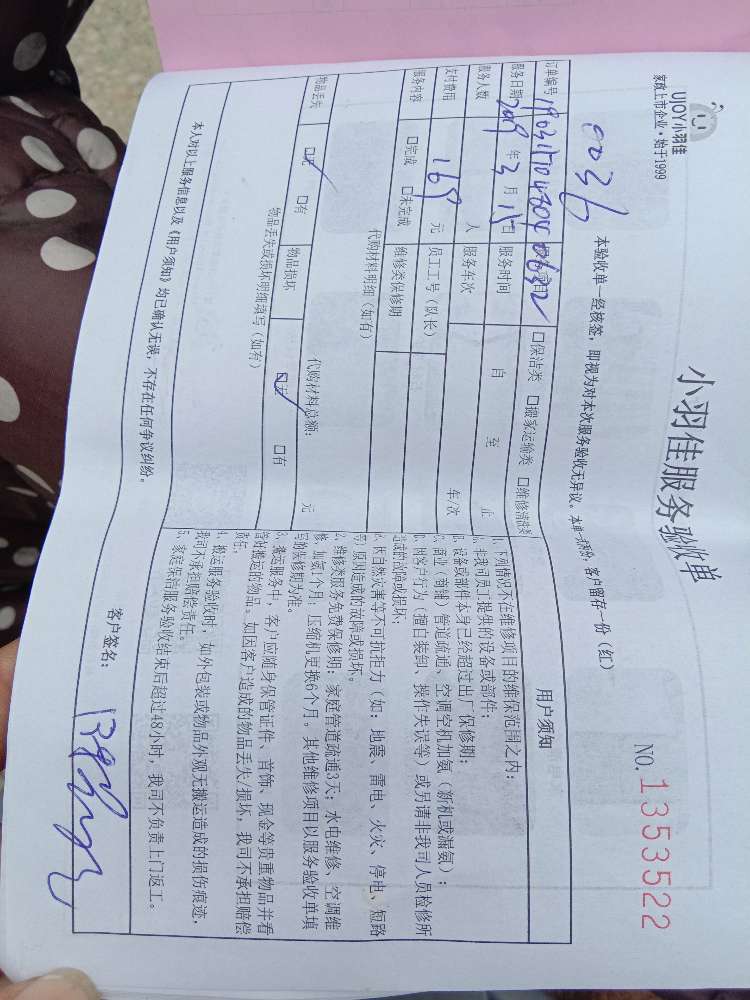 UJOY小羽佳
家政上市企业·始于1999
小羽佳服务验收单
NO.1353522
0036
本验收单一经核签，即视为对本次服务验收无异议。本单一式两份，客户留存一份（红）
订单编号
□保洁类 □搬家运输类 □维修清洗类
服务日期 2019年3月15日 服务时间 自 至 止
服务人数 人 服务车次 年/次
支付费用 168 元 员工工号（队长）
服务内容 □完成 □未完成 维修类保修期
代购材料明细（如有）
代购材料总额： 元
物品丢失 □无 □有 物品损坏 □无 □有
物品丢失或损坏明细填写（如有）
本人对以上服务信息以及《用户须知》均已确认无误，不存在任何争议纠纷。
用户须知
1、下列情况不在维修项目的维保范围之内：
非我司员工提供的设备或部件；
设备或部件本身已经超过出厂保修期；
商业（商铺）管道疏通、空调空机加氨（新机或漏氨）；
因客户行为（擅自装卸、操作失误等）或另请非我司人员检修所
造成的故障或损坏；
因自然灾害等不可抗拒力（如：地震、雷电、火灾、停电、短路
等）原因造成的故障或损坏。
2、维修类服务免费保修期：家庭管道疏通3天；水电维修、空调维
修、加氨1个月；压缩机更换6个月。其他维修项目以服务验收单填
写的保修期为准。
3、搬运服务中，客户应随身保管证件、首饰、现金等贵重物品并看
管好搬运的物品。如因客户造成的物品丢失/损坏，我司不承担赔偿
责任。
4、搬运服务验收时，如外包装或物品外观无搬运造成的损伤痕迹，
我司不承担赔偿责任。
5、家庭保洁服务验收结束后超过48小时，我司不负责上门返工。
客户签名：